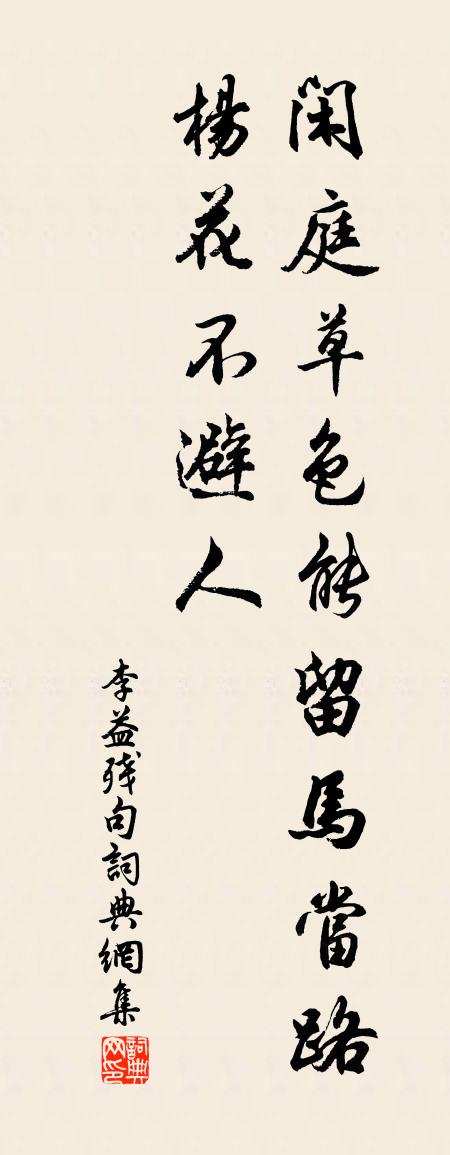 閑庭草色能留馬當路
楊花不避人
李益殘句詞典網集
詞典网印